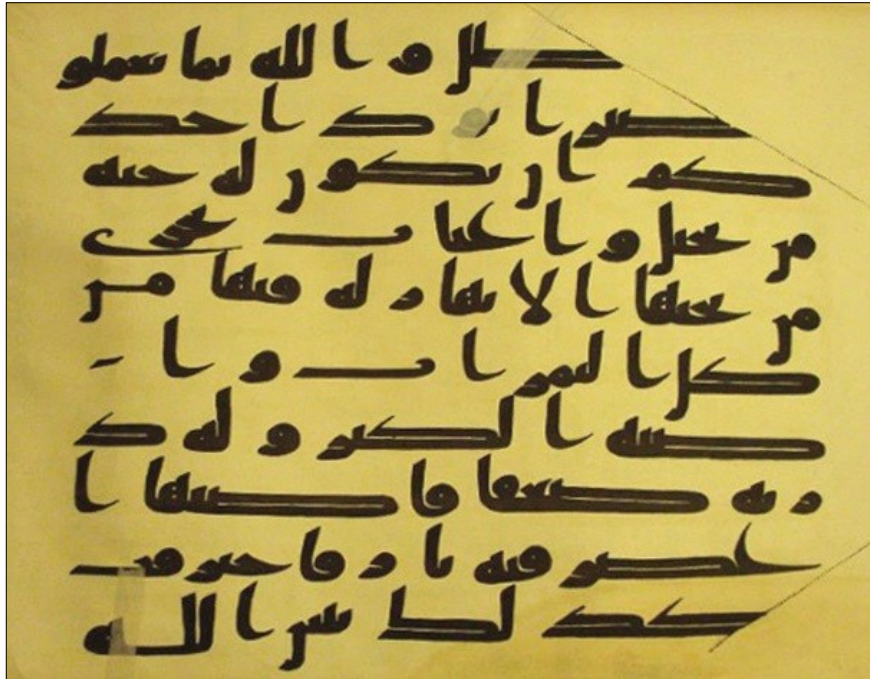 طل والله بما تعملو
بصير ايود احد
كم ان تكون له جنه
من نخيل واعناب تجري
من تحتها الانهار له فيها من
كل الثمرات وا
صبه الكبر وله ذ
ريه ضعفا فاصبها ا
عصر فيه نار فاحترقت
كذلك يبين الله